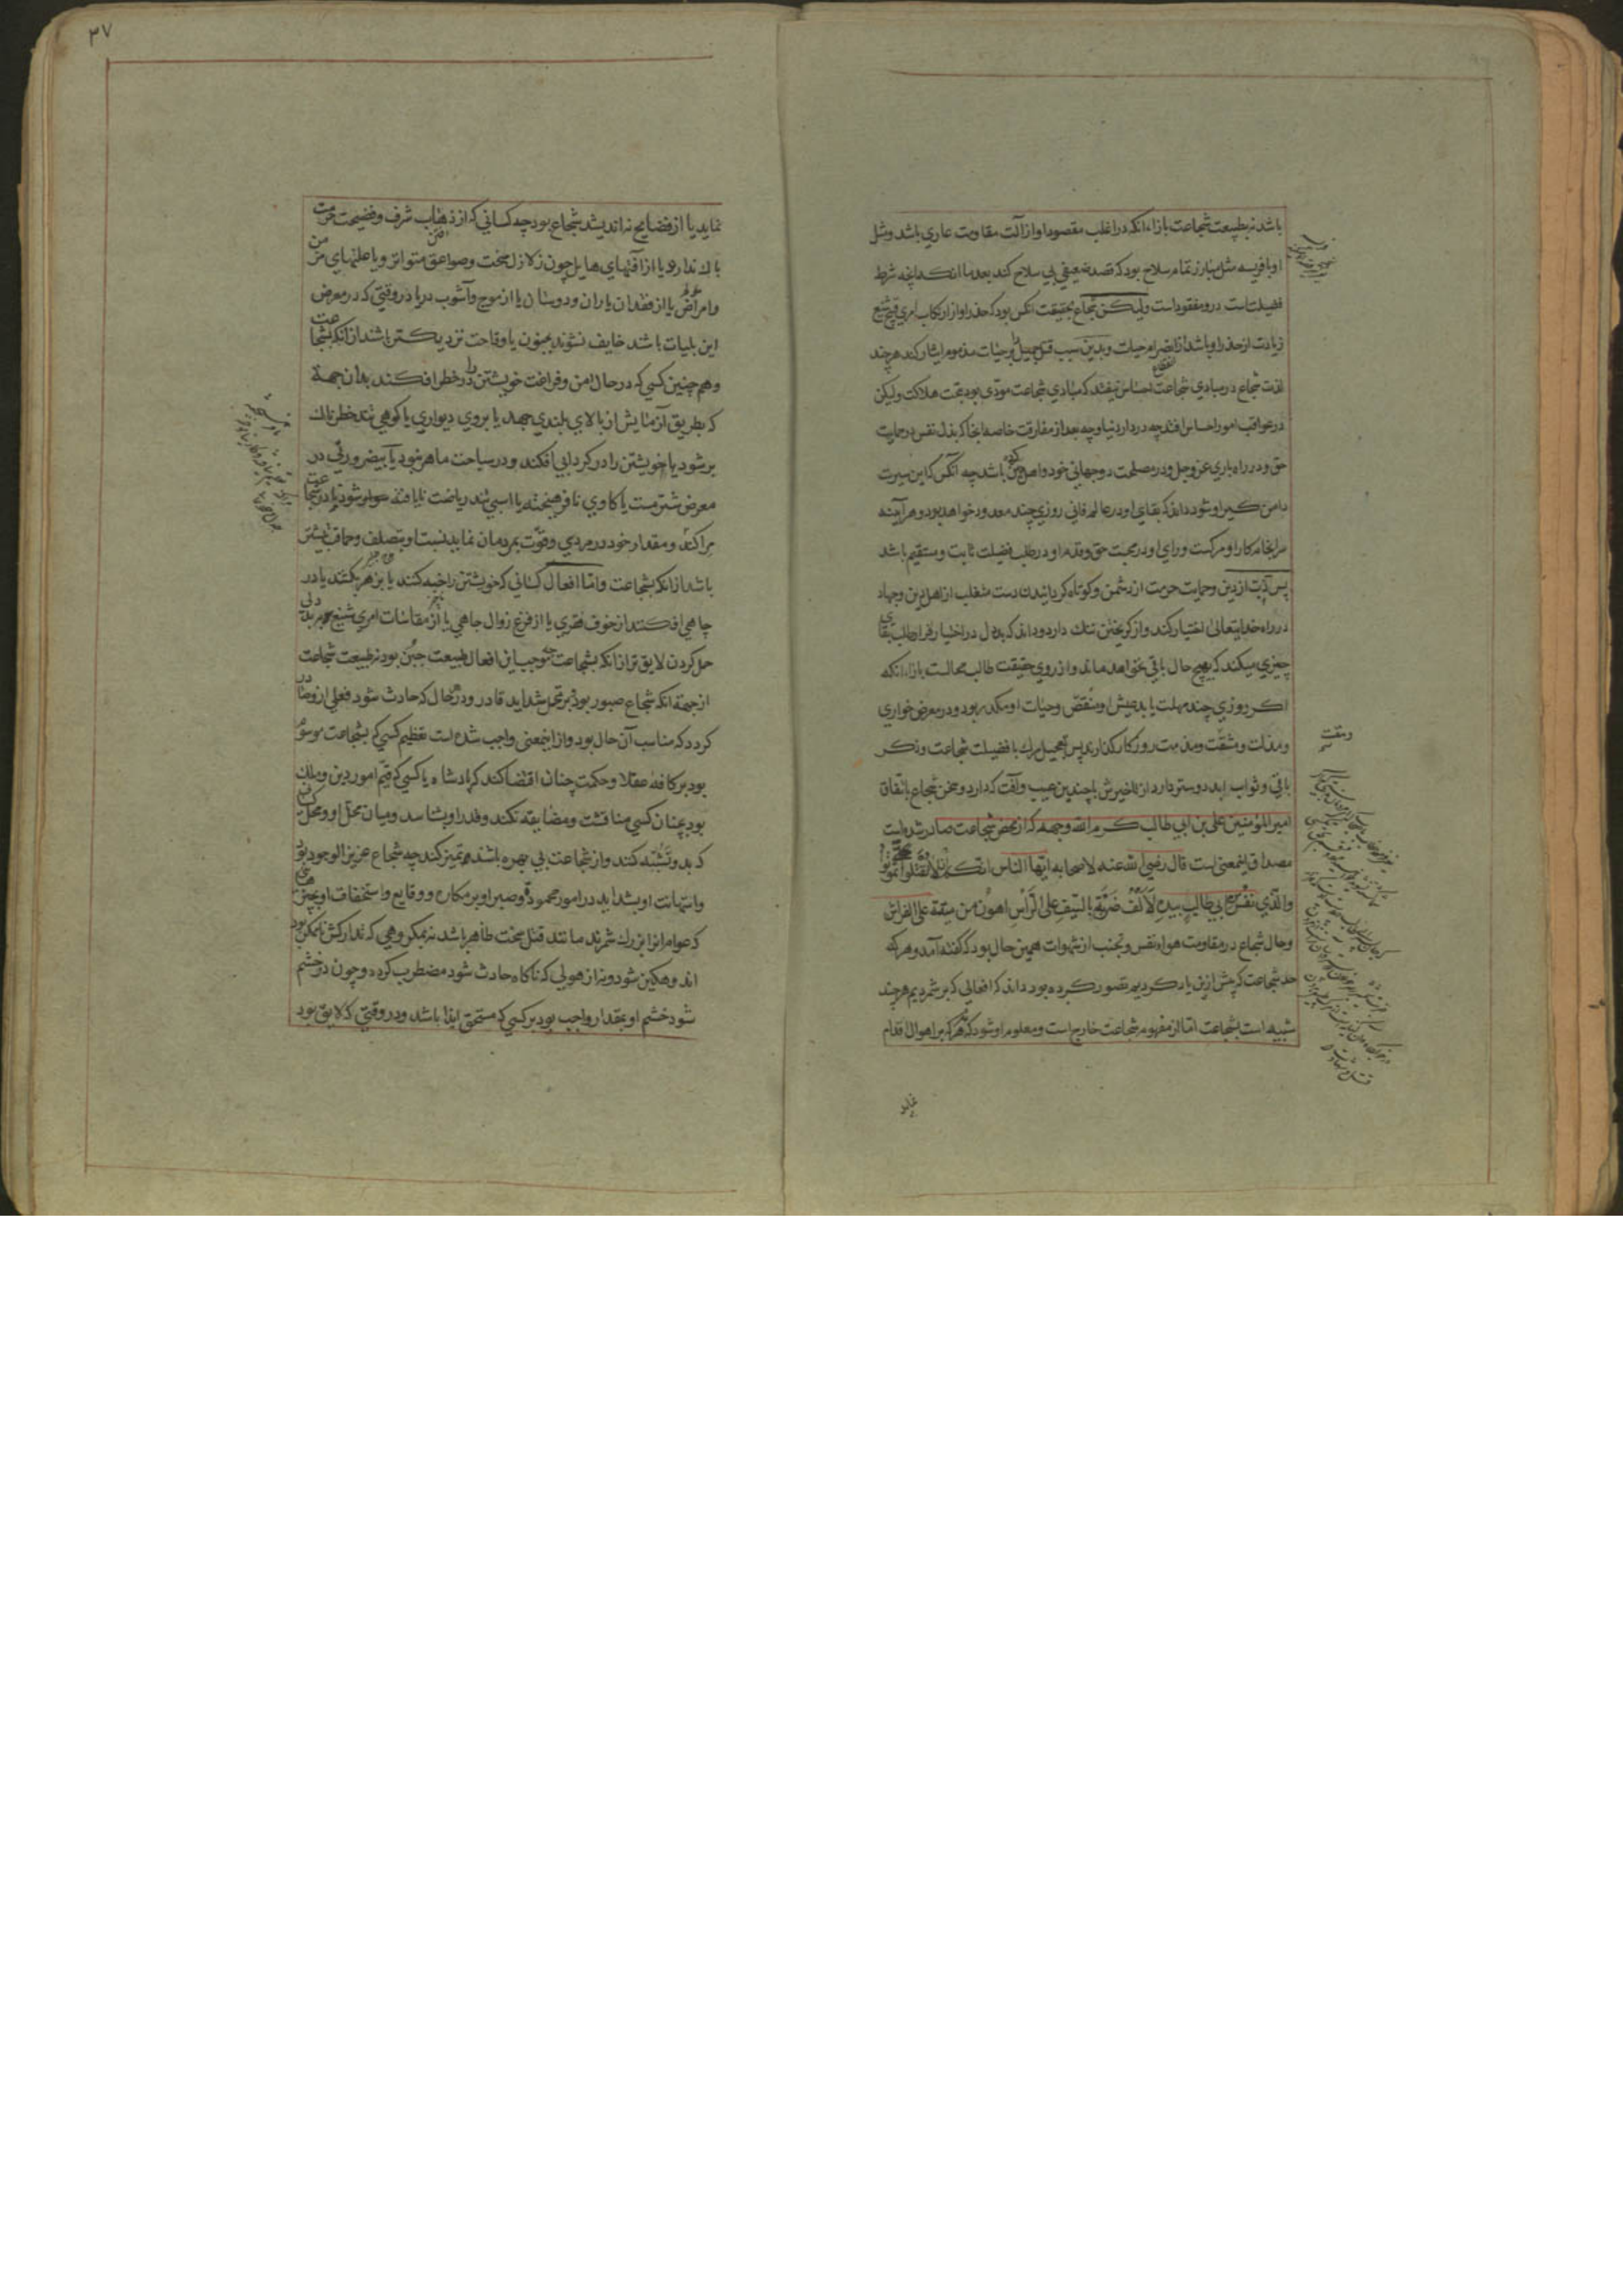 باشد نه بطبیعت شجاعت بازاء انکه در اغلب مقصود او از آلت مقاومت عاری باشد ومثل
او با فریسه مثل مبارز تمام سلاح بود که قصد ضعیفی بی سلاح کند بعد ما انک انچه شرط
فضیلت است درو مفقود است ولیکن شجاع بحقیقت انکس بود که حذر او از ارتکاب امری قبیح شنیع
زیادت از حذر او باشد از انصرام حیات وبدین سبب قتل جمیل را بر حیات مذموم ایثار کند هر چند
لذت شجاع در مبادی شجاعت احساس نیفتد که مبادی شجاعت مودّی بود بحت هلاکت ولیکن
در عواقب امور احساس افتد چه در دار دنیا وچه بعد از مفارقت خاصه انجا که بذل نفس در حمایت
حق ودر راه باری عز وجل ودر مصلحت دوجهانی خود واهل دین کند باشد چه آنکس که این سیرت
دامن گیر او شود داند که بقای او در عالم فانی روزی چند معدود خواهد بود وهر آینه
سرانجام کار او مرگست ورای او در محبت حق وقدم او در طلب فضیلت ثابت ومستقیم باشد
پس ذبّ از دین وحمایت حرمت از دشمن وکوتاه گردانیدن دست متغلب از اهل دین وجهاد
در راه خدایتعالی اختیار کند واز گریختن ننگ دارد وداند که بددل در اختیار فرار طلب بقای
چیزی میکند که بهیچ حال باقی نخواهد ماند واز روی حقیقت طالب محالست بازاء انکه
اگر روزی چند مهلت یابد عیش او منغّص وحیات او مکدر بود ودر معرض خواری
ومذلت ومشقّت ومذمت روزگار گذارند پس تعجیل مرگ با فضیلت شجاعت وذکر
ومقت
باقی وثواب ابد دوستر دارد از تاخیرش با چندین عیب وآفت که دارد وسخن شجاع باتفاق
امیر المؤمنین علی بن ابی طالب کرم الله وجهه که از محض شجاعت صادر شده است
مصداق اینمعنی است قال رضی الله عنه لاصحابه ایّها الناس انکم ان لم تقتلوا تموتوا
والذی نفس ابن ابی طالب بیده لَاَلْفُ ضَرْبَةٍ بالسّیفِ علی الرّأسِ اهوَنُ من میتة علی الفراش
وحال شجاع در مقاومت هواء نفس وتجنب از شهوات همین حال بود که گفته آمد وهر که
حد شجاعت که پیش ازین یاد کردیم تصور کرده بود داند که افعالی که بر شمردیم هر چند
شبیه است بشجاعت اما از مفهوم شجاعت خارج است ومعلوم او شود که نه هر که بر اهوال اقدام
نماید
۳۷
نماید یا از فضایح نه اندیشد شجاع بود چه کسانی که از ذهاب شرف وفضیحت حرمت
باک ندارد یا از آفتهای هایل چون زلازل سخت وصواعق متواتر ویا علتهای مزمن
وامراض یا از فقدان یاران ودوستان یا از موج وآشوب دریا در وقتی که در معرض
این بلیات باشد خایف نشوند بجنون یا وقاحت نزدیکتر باشند از انکه بشجاعت
وهم چنین کسی که در حال امن وفراغت خویشتن را در خطر افکند بدان جهة
که بطریق آزمایش از بالای بلندی جهد یا بروی دیواری یا کوهی تند خطرناک
بر شود یا خویشتن را در گردابی افکند ودر سباحت ماهر نبود یا بیضرورتی در
معرض شتر مست یا گاوی نافرهیخته یا اسبی تند ریاضت نایافته شود تا در شجاعت
مرا کند ومقدار خود در مردی وقوّت بمردمان نماید نسبت او بتصلف وحماقت بیشتر
باشد از انکه بشجاعت واما افعال کسانی که خویشتن را خبه کنند یا بزهر بکشند یا در
چاهی افکنند از خوف فقری یا از فزع زوال جاهی یا از مقاسات امری شنیع بر بددلی
حمل کردن لایق تر از انکه بشجاعت چه موجب این افعال طبیعت جبن بود نه طبیعت شجاعت
از جهة انکه شجاع صبور بود وبر تحمل شداید قادر ودر هر حال که حادث شود فعلی ازو صادر
گردد که مناسب آن حال بود واز اینمعنی واجب شده است تعظیم کسی که بشجاعت موسوم
بود بر کافه عقلا وحکمت چنان اقتضا کند که پادشاه یا کسی که قیّم امور دین وملک
بود بچنان کسی منافست ومضایقه نکند وقدر او بشناسد ومیان محل او ومحل کسی
که بدو تشبّه کنند واز شجاعت بی بهره باشند تمییز کند چه شجاع عزیز الوجود بود
واستهانت او بشداید در امور محمود وصبر او بر مکاره ووقایع واستخفاف او بچیزهایی
که عوام انرا بزرگ شمرند مانند قتل سخت ظاهر باشد نه بمکروهی که تدارکش ناممکن بود
اندوهگین شود ونه از هولی که ناگاه حادث شود مضطرب گردد وچون در خشم
شود خشم او بمقدار واجب بود بر کسی که مستحق ایذا باشد ودر وقتی که لایق بود